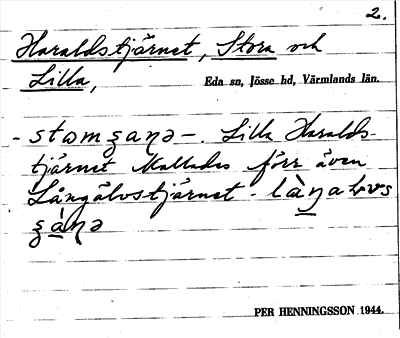 2.
Haraldstjärnet, Stora och
Lilla,
Eda sn, Jösse hd, Värmlands län.
Lilla Haralds-
tjärnet kallades förr även
Långälvstjärnet -
PER HENNINGSSON 1944.